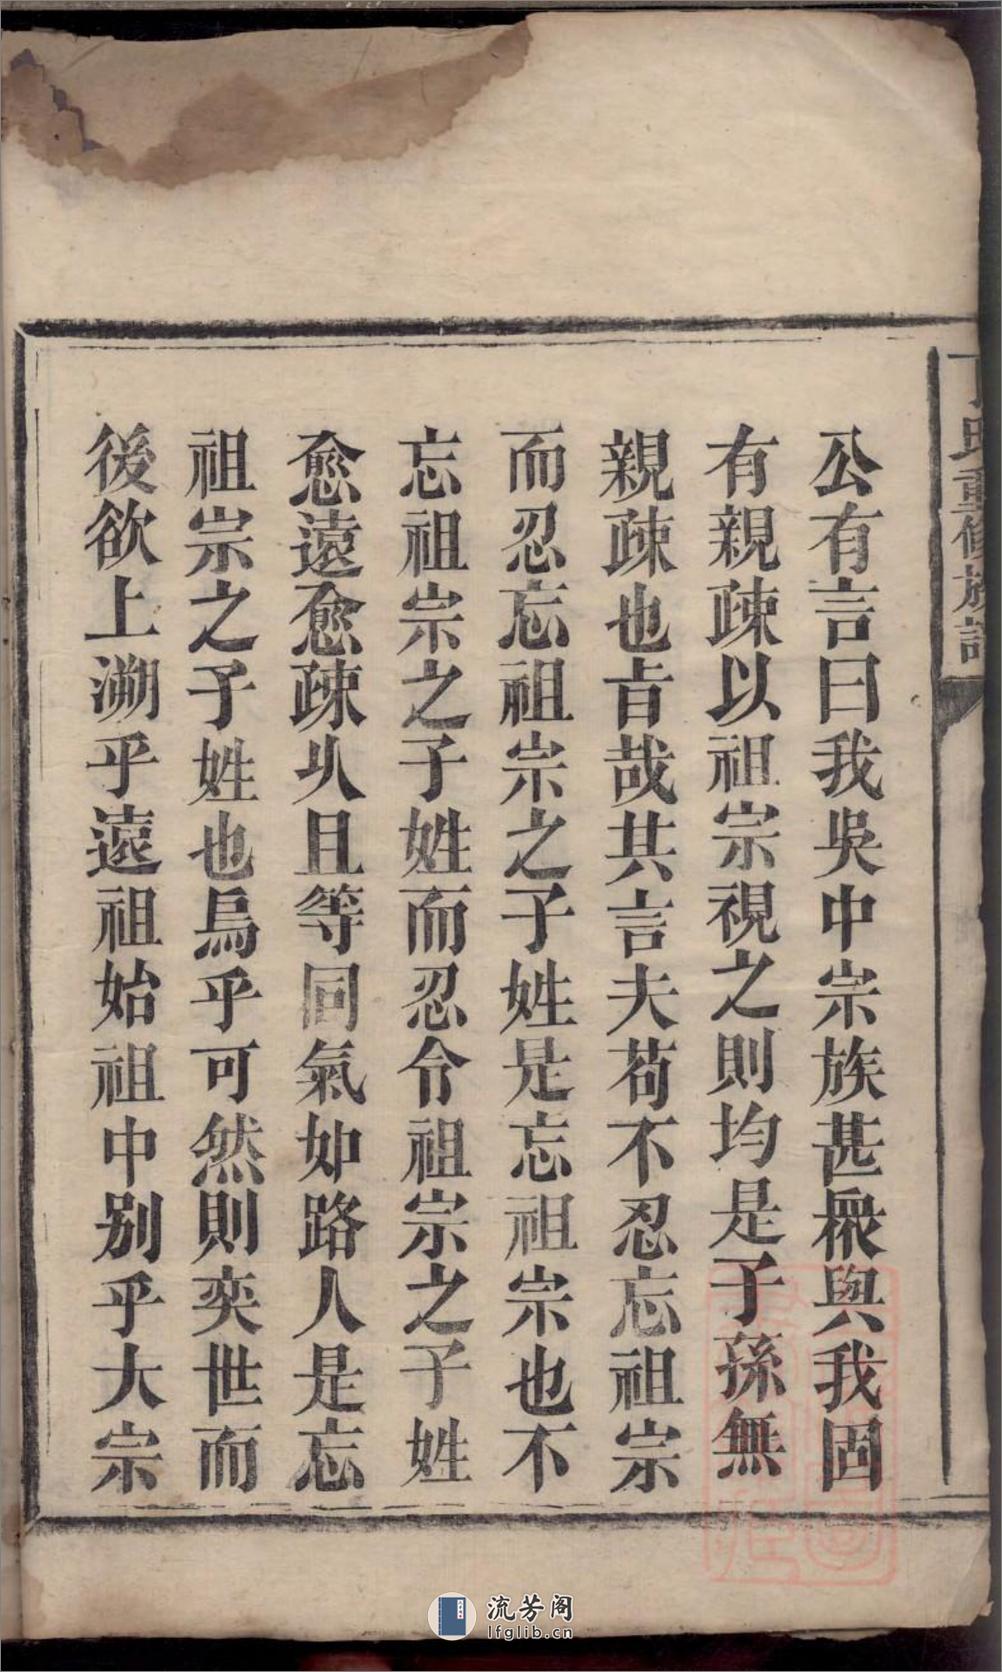 丁氏重修族譜
公有言曰我吳中宗族甚衆與我固
有親疎以祖宗視之則均是子孫無
親疎也旨哉其言夫苟不忍忘祖宗
而忍忘祖宗之子姓是忘祖宗也不
忘祖宗之子姓而忍令祖宗之子姓
愈遠愈疎乆且等同氣如路人是忘
祖宗之子姓也烏乎可然則奕世而
後欲上溯乎遠祖始祖中別乎大宗
流芳阁
lfglib.cn